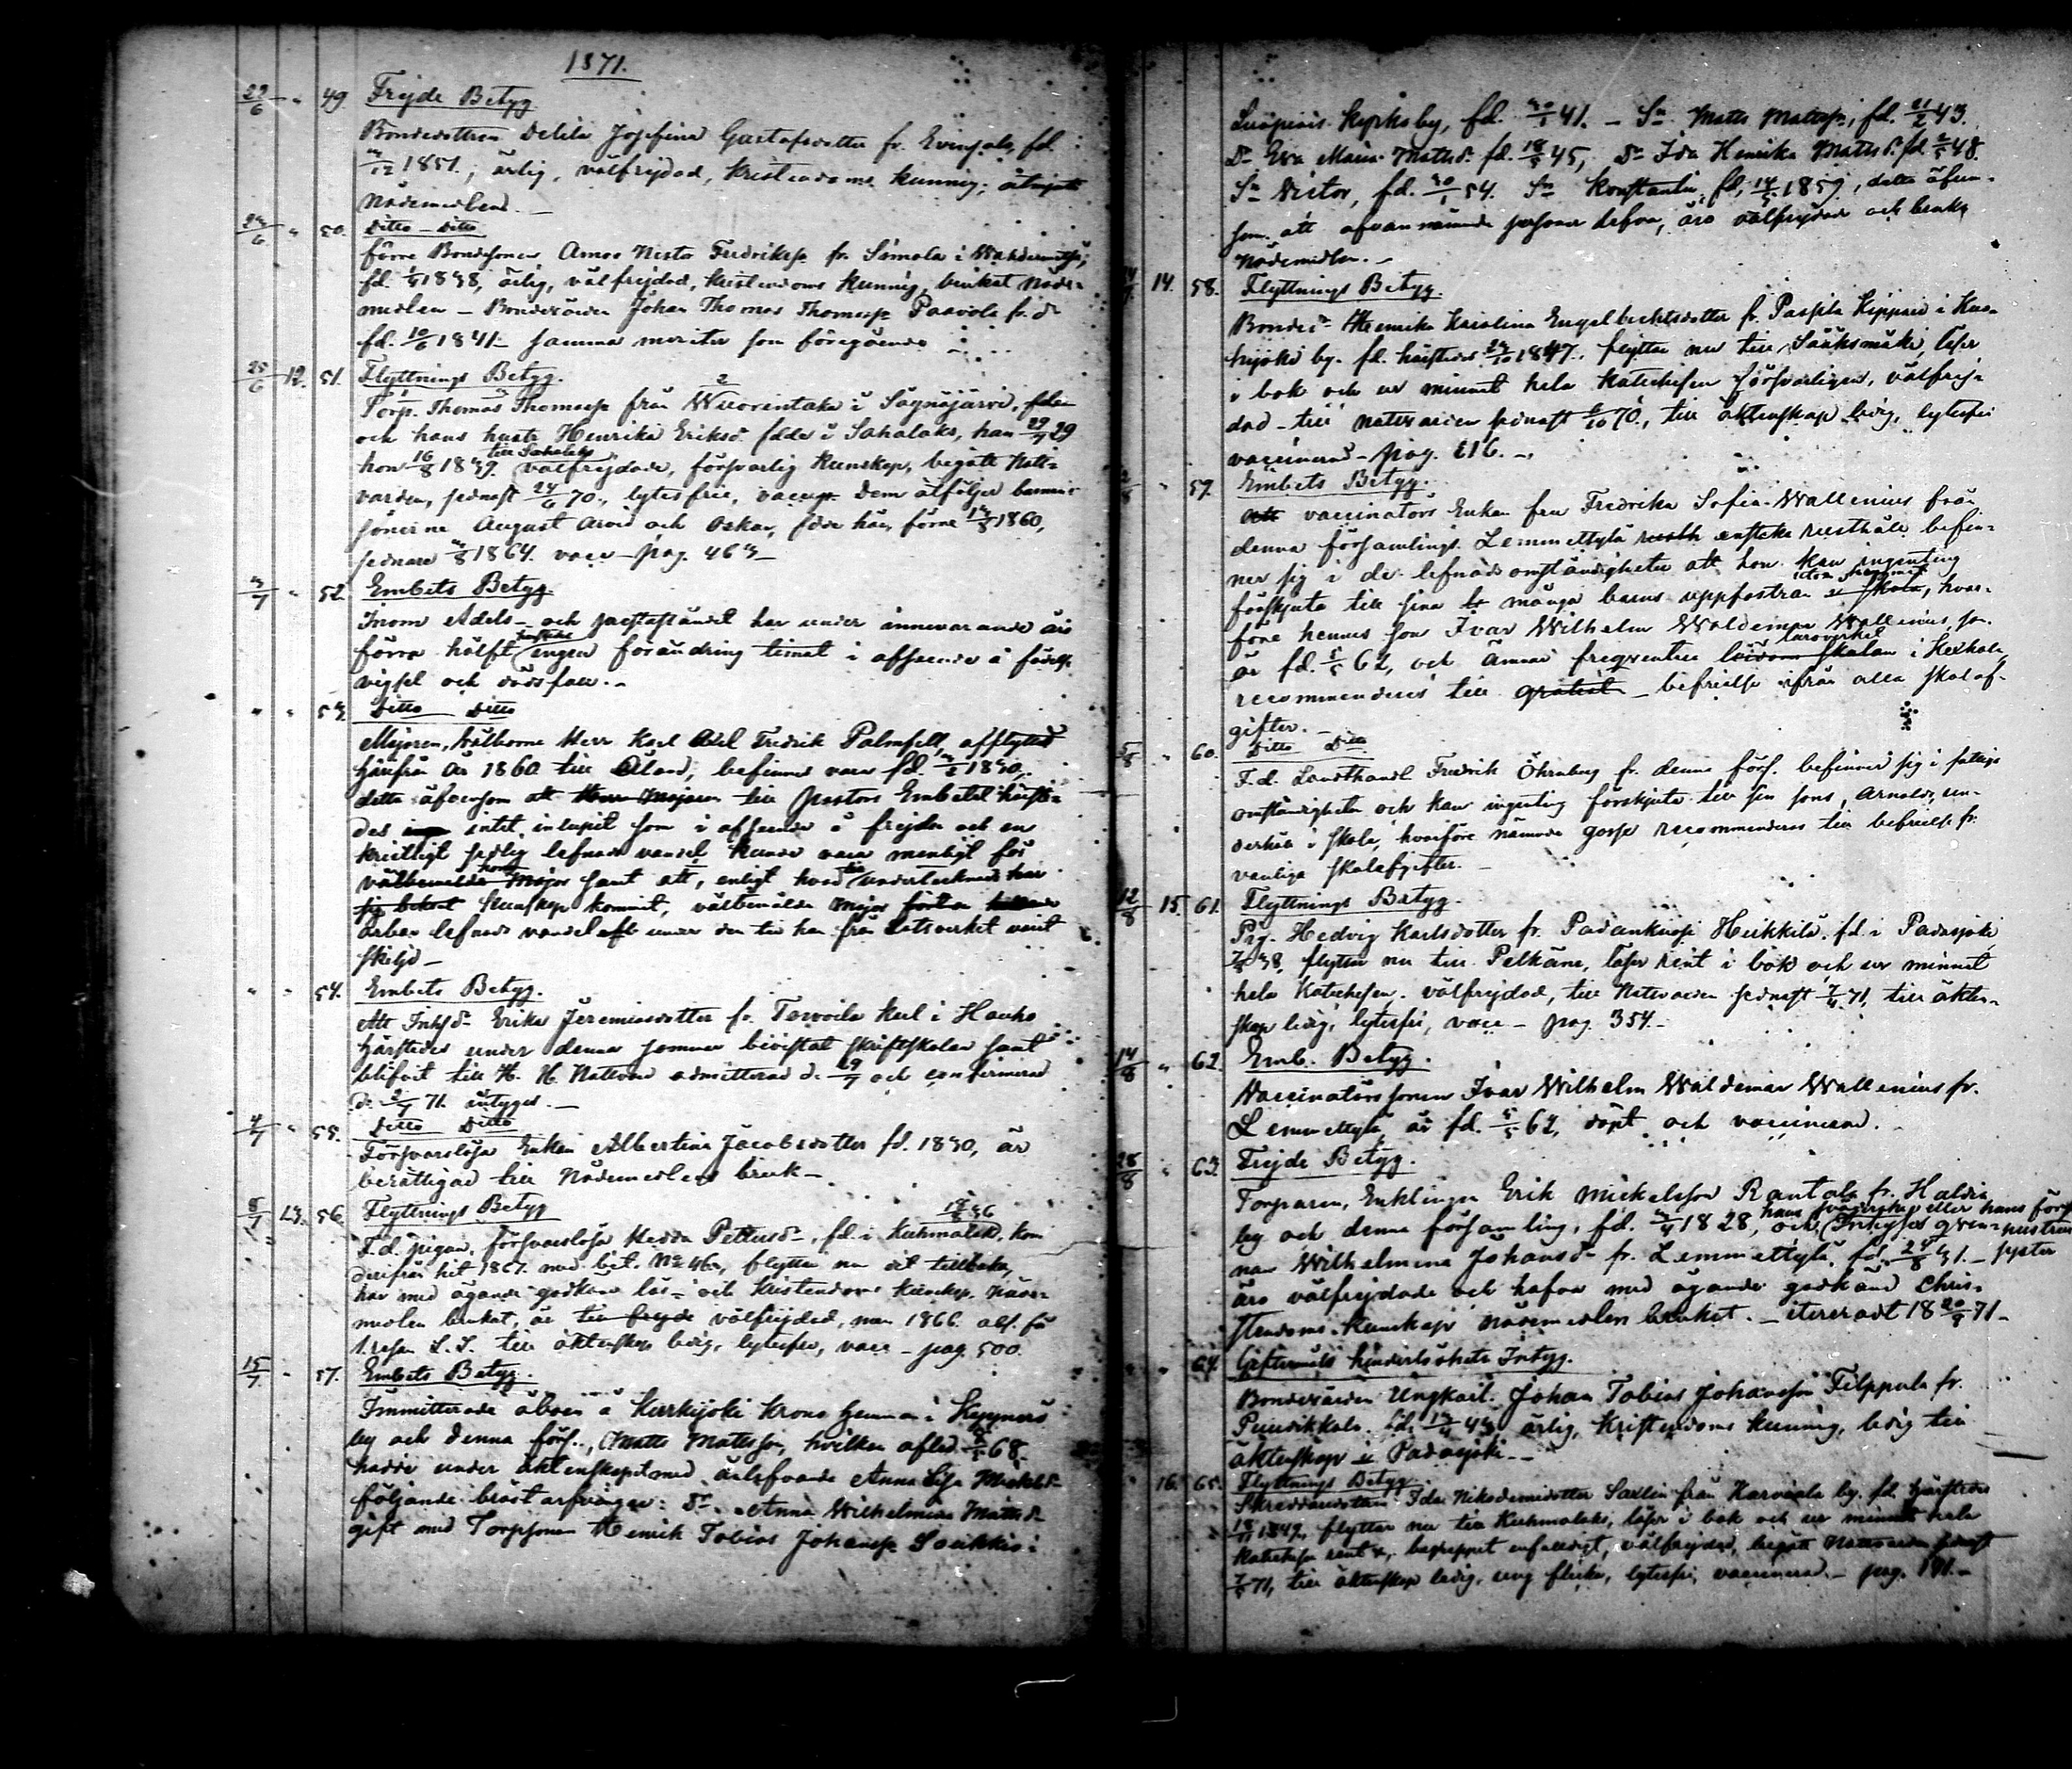 1871.
22/6 " 49 Frejde Betyg
Bondedottren Delila Josefina Gustafsdotter fr. Evinsalo, fd.
1851, ärlig, välfrejdad, kristendoms kunnig, åtnjutit
Nådemedlend. _
24/6 " 50. Ditto – Ditto
förre Bondesonen Amos Nestor Fredrikss. fr. Simola i
fd. 1848, ärlig, välfrejdad, kristendoms kunnig, brukat Nåde=
medlen – Bondesonen Johan Thomas Thomass. Paavola fr. do
fd. 10/6 1841 – samma meriter som föregående
25/6 12. 51. Flyttnings Betyg. 2
Torp. Thomas Thomass. från Wuorentaka i Sagnajärvi,
och hans hustr. Henrika Eriksd. födde i Sahalaks, han 29/4 29
hon 16/8 1839. till Sahalaks välfrejdade, försvarlig kunskap, begått Natt=
varden, sednast 24/6 70., lytesfrie, vaccin. Dem åtföljer barnen:
sönerne August Arvid och Oskar, födde här, förre 1860,
sednare 1864. vacc – pag. 463 –
3/7 " 52. Embets Betyg
Inom Adels– och prestaståndet har under innevarande års
förra hälft härstädes ingen förändring timat i afseende å födelse
vigsel och dödsfall. –
" " 53. Ditto Ditto
Majoren, Välborne Herr Karl Axel Fredrik Palmfelt, afflyttad
härifrån år 1860 till Åland, befinnes vara fd. 1830,
detta äfvensom att Herr Majoren till Pastors Embetet härstä=
des intet inlupit som i afseende å frejden och en
kristligt sedlig lefnads vandel kunde vara menligt för
välbemälde Herr Major samt att, enligt hvad till undertecknads har
sig bekant kunskap kommit, välbemälde Major fört en
ärbar lefnads vandel under den tid han från Etsverket varit
skiljd –
" " 54. Embets Betyg.
Att Inhsd. Erika Jeremiasdotter fr. Torvoila Kul i Hauho
härstädes under denna sommar bivistat skriftskolan samt
blifvit till H. H. Nattvard admitterad d. 29/7 och confirmerad
d. 2/7 71. intygas. —
4/7 " 55. Ditto Ditto
Försvarslösa Enkan Albertina Jacobsdotter fd. 1830, är
berättigad till Nådemedlens bruk –
8/7 13. 56. Flyttnings Betyg
F.d. pigan, försvarslösa Hedda Pettersd., fd. i Kuhmalaks, kom
derifrån hit 1867. med bet. No 46, flyttar nu dit tillbaka,
har med ägande godkänd läs– och kristendoms kunskap nåde=
medlen brukat, är till frejde välfrejdad, men 1866. abs. för
1. resan L. S. till äktenskap ledig, lytesfri, vacc – pag. 500.
15/7 " 57. Embets Betyg.
Immitterade åboen å Kurkijoki Krono hemman i Kyynärö
by och denna förs., Matts Mattsson, hvilken afled 68.
hade under äktenskapet med ärlefvande Anna Lisa Mickelsd.
följande bröstarfvingar: Dr. Anna Wilhelmina Mattsd.
gift med Torpsonen Henrik Tobias Johanss. Soukkio i
Luopiois Kyrkoby, fd. 41. – Sn Matts Mattss., fd. 21/2 43.
Dr Eva Maria Mattsd. fd. 18/5 45, Dr Ida Henrika Mattsd. fd. 48.
Sn Victor, fd. 54. Sn Konstantin fd. 14/5 1859, detta äfven=
som att ofvannämnde personer lefva, äro välfrejdade och bruka
Nådemedlen. –
14. 58. Flyttnings Betyg.
Bonded. Henrika Karolina Engelbrektsdotter fr. Pussila Kippari i Kuo=
hijoki by. fd. härstädes 1847, flyttar nu till Sääksmäki, läser
i bok och ur minnet hela Katechesen försvarligen, välfrej=
dad – till nattvarden sednast 70, till äktenskap ledig, lytesfri
vaccinerad – pag. 216. –
2/8 " 59. Embets Betyg.
Att vaccinators Enkan fru Fredrika Sofia Wallenius från
denna församlings Lemmettylä rusth enstaka rusthåll befin=
ner sig i de lefnads omständigheter att hon kan ingenting
förskjuta till sina många barns uppfostran i skola, hvar=
före hennes son Ivar Wilhelm Waldemar Wallenius, som
är fd. 5/5 62, och ämnar freqventera läroverket i Kexholm,
recommenderas till gratist – befrielse ifrån alla skolaf=
gifter. –
5/8 " 60. Ditto Dto
F.d. Landthandl. Fredrik Öhrnberg fr. denna förs. befinner sig i fattiga
omständigheter och kan ingenting förskjuta till sin sons, Arnolds, un=
derhåll i skola, hvarföre nämnde gosse recommenderas till befrielse fr.
vanliga skolafgifter. –
12/8 15. 61. Flyttnings Betyg.
Pig. Hedvig Karlsdotter fr. Padankoski Heikkilä. fd. i Padasjoki
38, flyttar nu till Pelkäne, läser rent i bok och ur minnet
hela Katechesen. välfrejdad, till Nattvarden sednast 71, till äkten=
skap ledig, lytesfri, vacc – pag. 354. –
14/8 " 62. Emb. Betyg.
Vaccinatorssonen Ivar Wilhelm Waldemar Wallenius fr.
Lemmettylä, är fd. 5/5 62, döpt och vaccinerad.
28/8 " 63. Frejde Betyg.
Torparen, Enklingen Erik Mickelsson Rantala fr. Haltia
by och denna församling, fd. 1828, och hans svägerska eller hans förra hustrus syster Inhyses qvin=
nan Wilhelmina Johansd. fr. Lemmettylä, fd. 31. –
äro välfrejdade och hafva med ägande godkänd Chris=
tendoms kunskap nådemedlen brukat. – itereradt 18 71 –
" " 64. Giftermåls hinderlöshets Intyg.
Bondesonen Ungkarl. Johan Tobias Johansson Filppula fr.
Puntikkala. fd. 43 ärlig, Kristendoms kunnig, ledig till
äktenskap i Padasjoki. –
16. 65. Flyttnings Betyg.
Skräddaredottren Ida Nikodemidotter Saxlin från Karviala by. fd. härstädes
1849, flyttar nu till Kuhmalaks, läser i bok och ur minnet hela
Katechesen rent, begreppet enfaldigt, välfrejdad, begått Nattvarden sednast
71, till äktenskap ledig, ung flicka, lytesfri, vaccinerad. – pag. 191. –